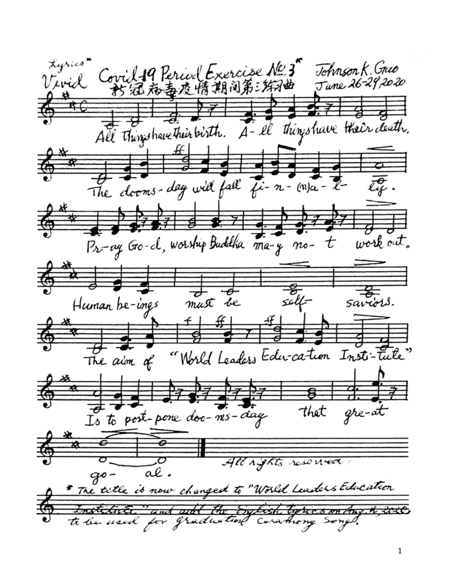 "Lyrics"
Vivid Covid-19 Period Exercise No. 3* Johnson K. Gao
新冠病毒疫情期间第三练习曲 June 26-29, 2020
All things have their birth. A-ll things have their death.
The dooms-day will fall fi-n-(n)a-l-ly.
Pr-ay Go-d, worship Buddha ma-y no-t work out.
Human be-ings must be self-saviors.
ff ff
The aim of "World Leaders Edu-ca-tion Insti-tute"
Is to post-pone doo-ms-day that gre-at
go-al. All rights reserved.
* The title is now changed to "World Leaders Education
Institute" and add the English lyrics on Aug.
to be used for graduation Song.
1